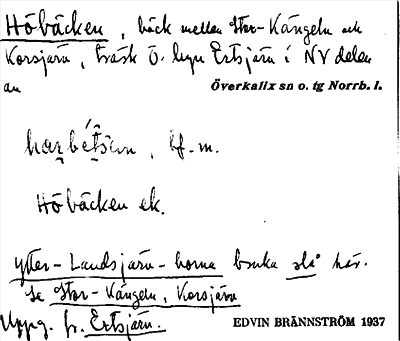 Höbäcken, bäck mellan Stor-Kängeln och
Korsjärn, träsk ö. byn Ertsjärn i NV delen
av Överkalix sn o. tg Norrb. l.
bf. m.
Höbäcken ek.
Ytter-Landsjärn-borna bruka slå här.
Se Stor-Kängeln, Korsjärn
Uppg. fr. Ertsjärn.
EDVIN BRÄNNSTRÖM 1937